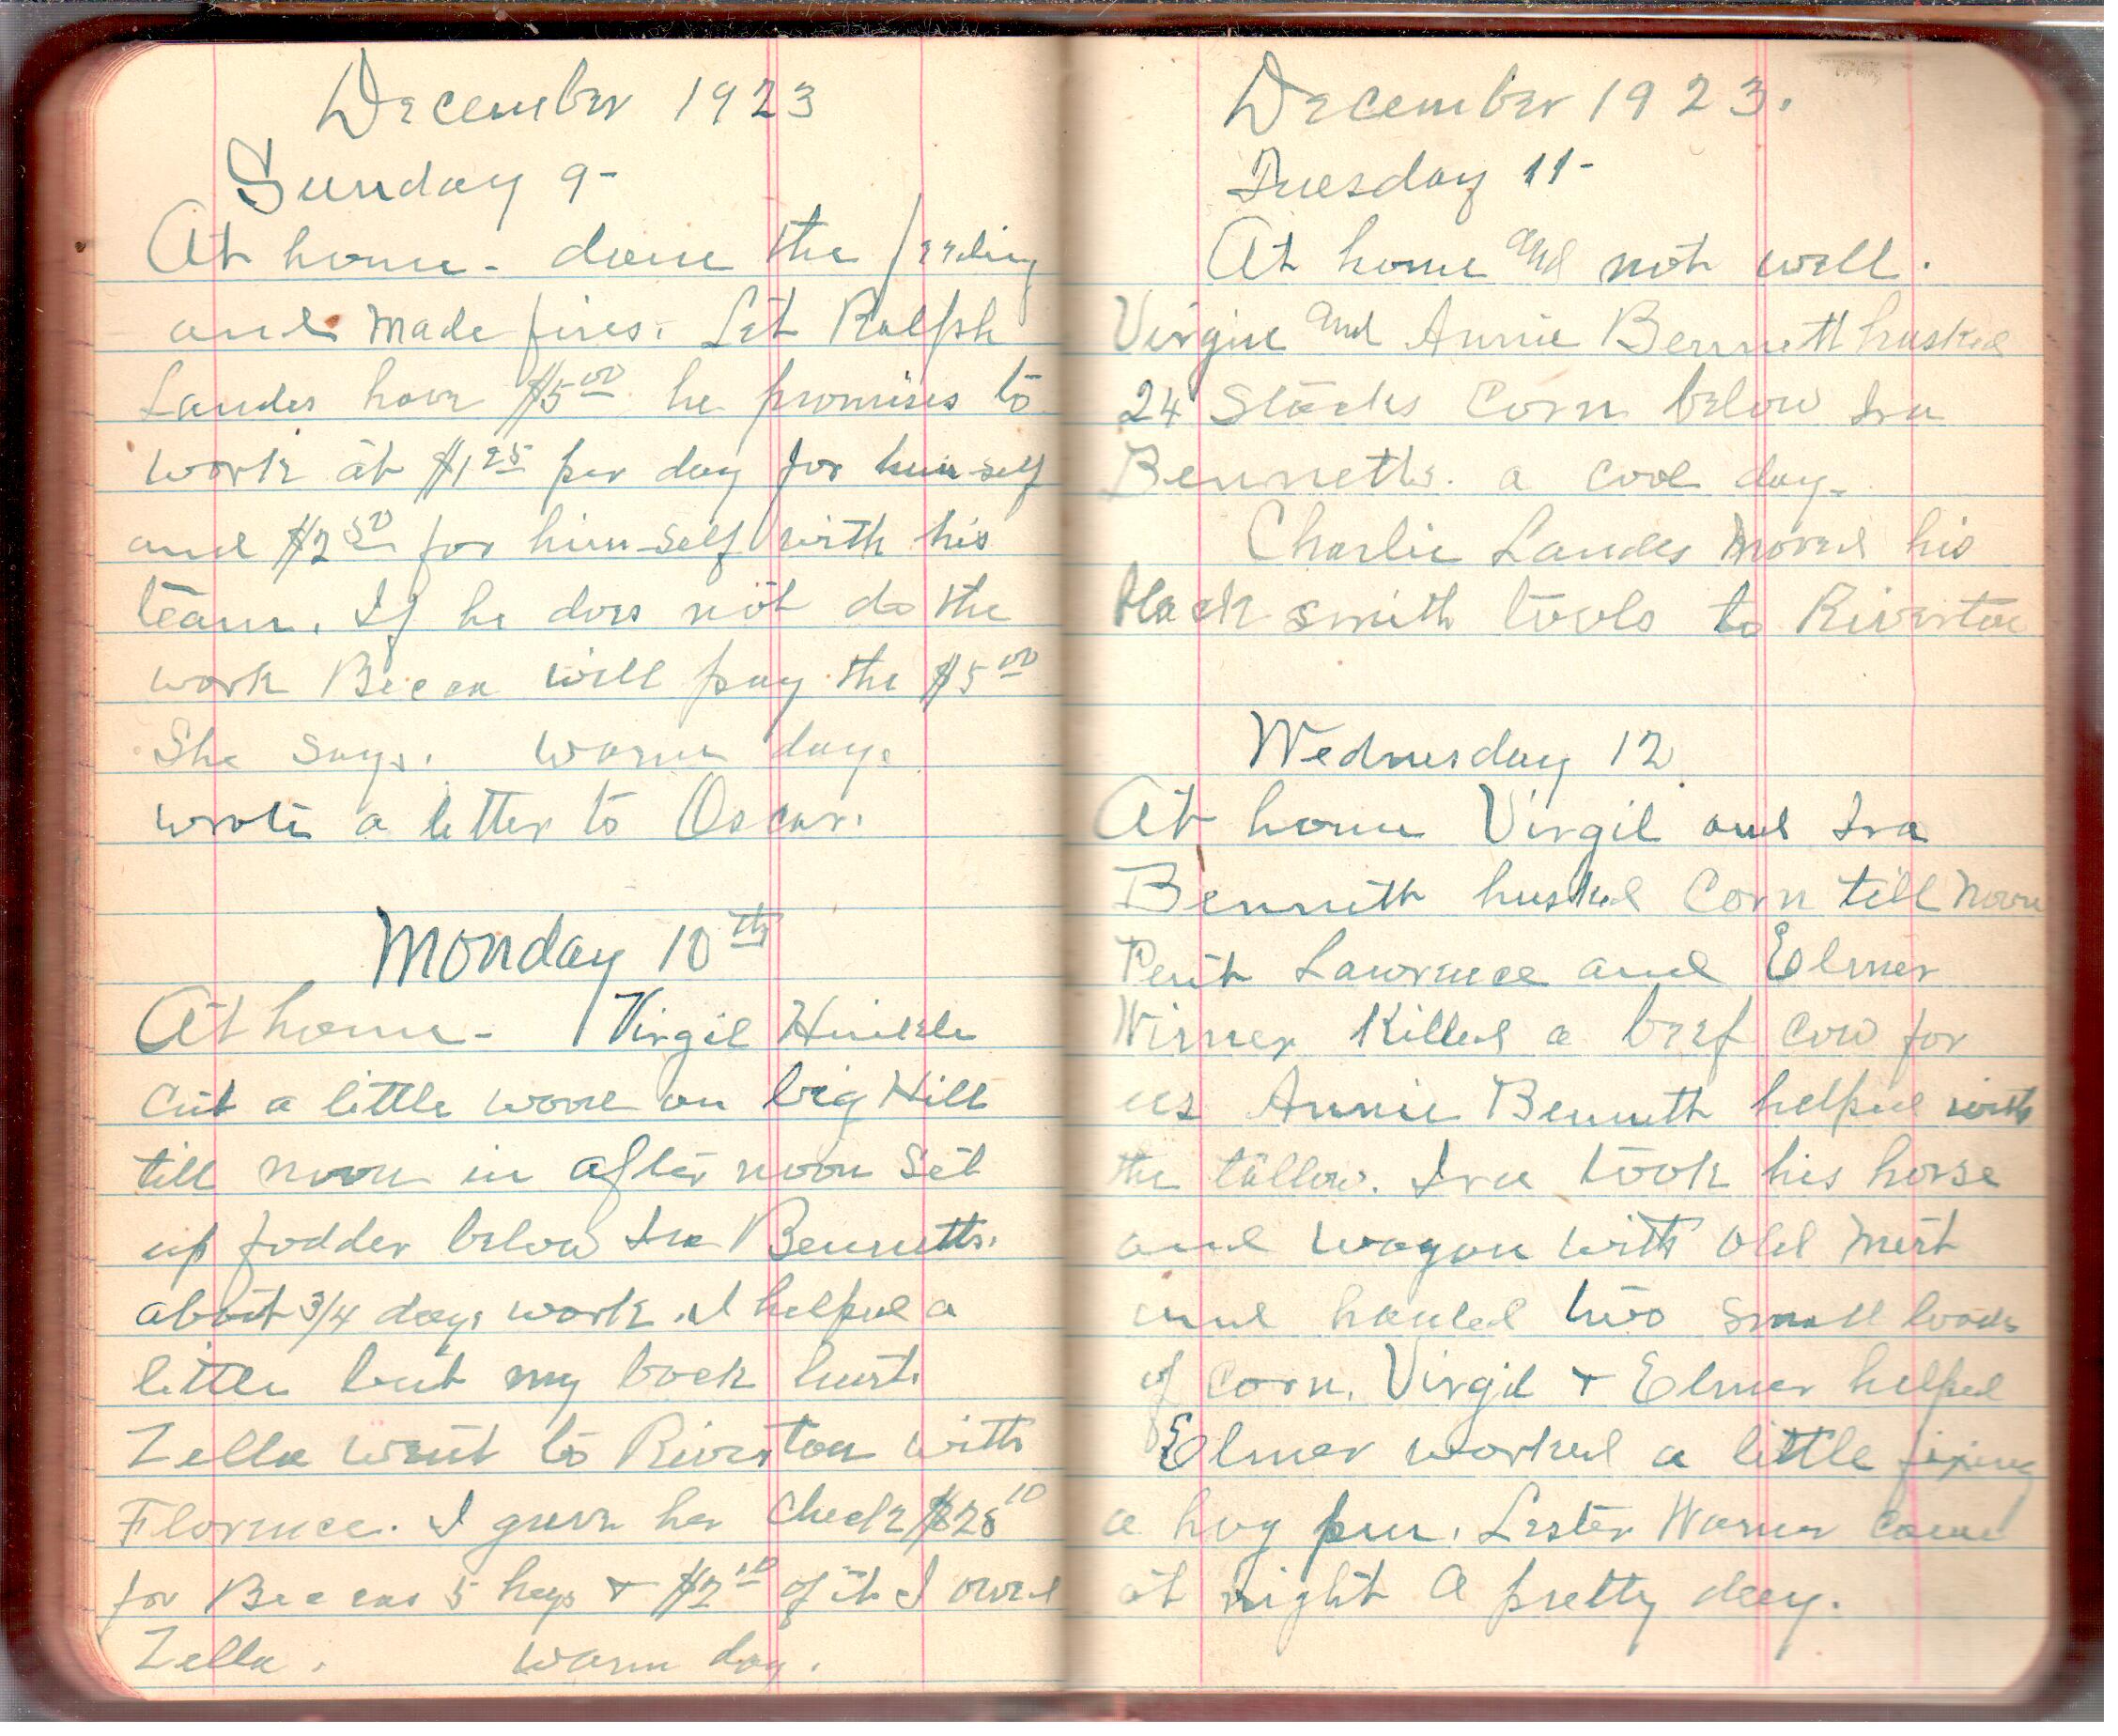 December 1923
Sunday 9-
At home - done the feeding
and made fires. Let Ralph
Landes have $5.00 he promises to
work at $1.25 per day for him-self
and $2.50 for him-self with his
team. If he does not do the
work Becca will pay the $5.00
She says. warm day.
wrote a letter to Oscar.
Monday 10th
At home - Virgil Hinkle
cut a little wood on big Hill
till noon in after noon set
up fodder below Ira Bennetts.
about 3/4 days work. I helped a
little but my back hurt.
Zella went to Riverton with
Florence. I gave her check $28.10
for Beccas 5 hogs & $2.10 of it I owed
Zella. warm day.
December 1923.
Tuesday 11-
At home and not well.
Virgil and Annie Bennett husked
24 Stacks Corn below Ira
Bennetts. a cool day-
Charlie Landes moved his
black smith tools to Riverton
Wednesday 12
At home Virgil and Ira
Bennett husked Corn till noon
Lawrence and Elmer
killed a beef cow for
us Annie Bennett helped with
the tallow. Ira took his horse
and wagon with old Mert
and hauled two small loads
of corn. Virgil & Elmer helped
Elmer worked a little fixing
a hog pen. Lester Warner came
at night A pretty day.